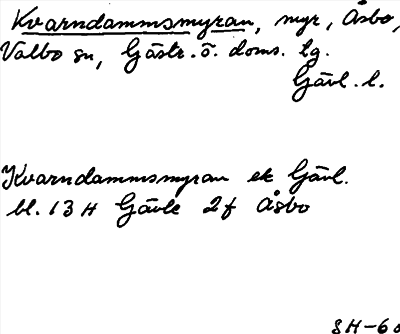 Kvarndammsmyran, myr, Åsbo,
Valbo sn, Gästr. ö. doms. tg.
Gävl. l.
Kvarndammsmyran ek Gävl.
bl. 13 H Gävle 2f Åsbo
SH-68